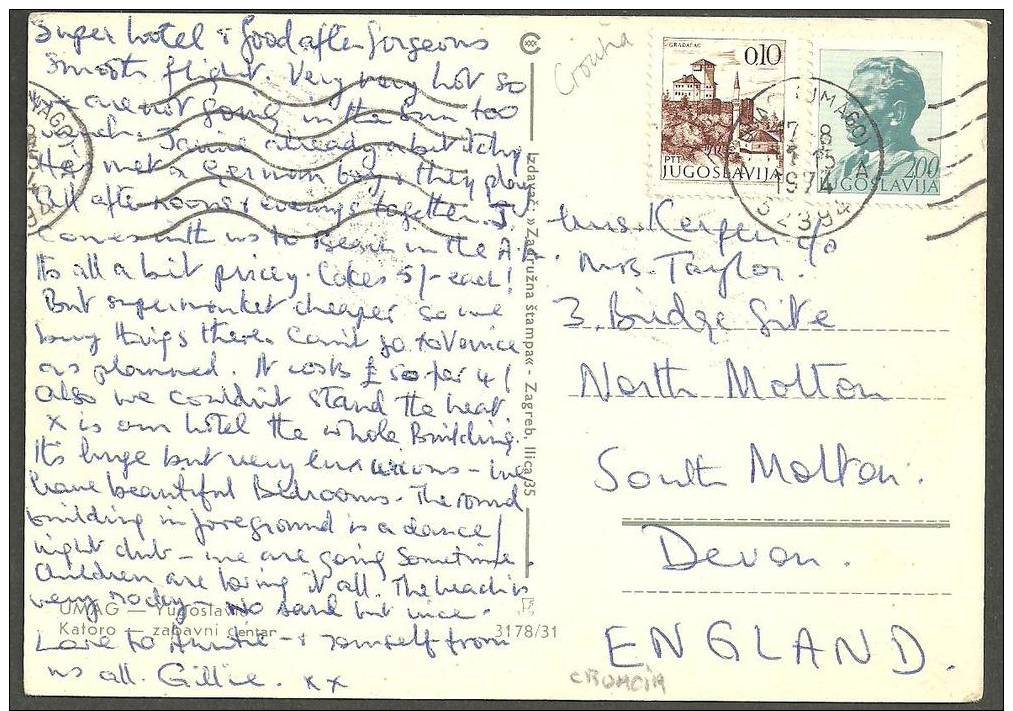 Super hotel & food after gorgeous
smooth flight. Very very hot so
we are not going in the sun too
much. Jamie already a bit itchy
He's met a German boy & they play
all afternoons & evenings together. J.
Comes with us to Beach in the A.M.
Its all a bit pricey. Cokes 5/- each!
But supermarket cheaper so we
buy things there. Can't go to Venice
as planned. It costs £50 for 4!
Also we couldn't stand the heat
X is our hotel the whole Building.
Its huge but very luxurious - we
have beautiful Bedrooms. The round
building in foreground is a dance/
night club - we are going sometime.
Children are loving it all. The beach is
very rocky - no sand but nice.
Love to Auntie - & yourself from
us all. Gillie. x x
UMAG — Yugoslavia
Katoro — zabavni centar
3178/31
Izdavač: »Zadružna štampa« - Zagreb, Ilica 35
Croatia
GRADAČAC
0,10
PTT
JUGOSLAVIJA
2,00
JUGOSLAVIJA
UMAGO
7 8
15
1974
52394
Mrs. Kerfen c/o
Mrs. Taylor.
3, Bridge Site
North Molton
South Molton.
Devon.
ENGLAND.
CROACIA